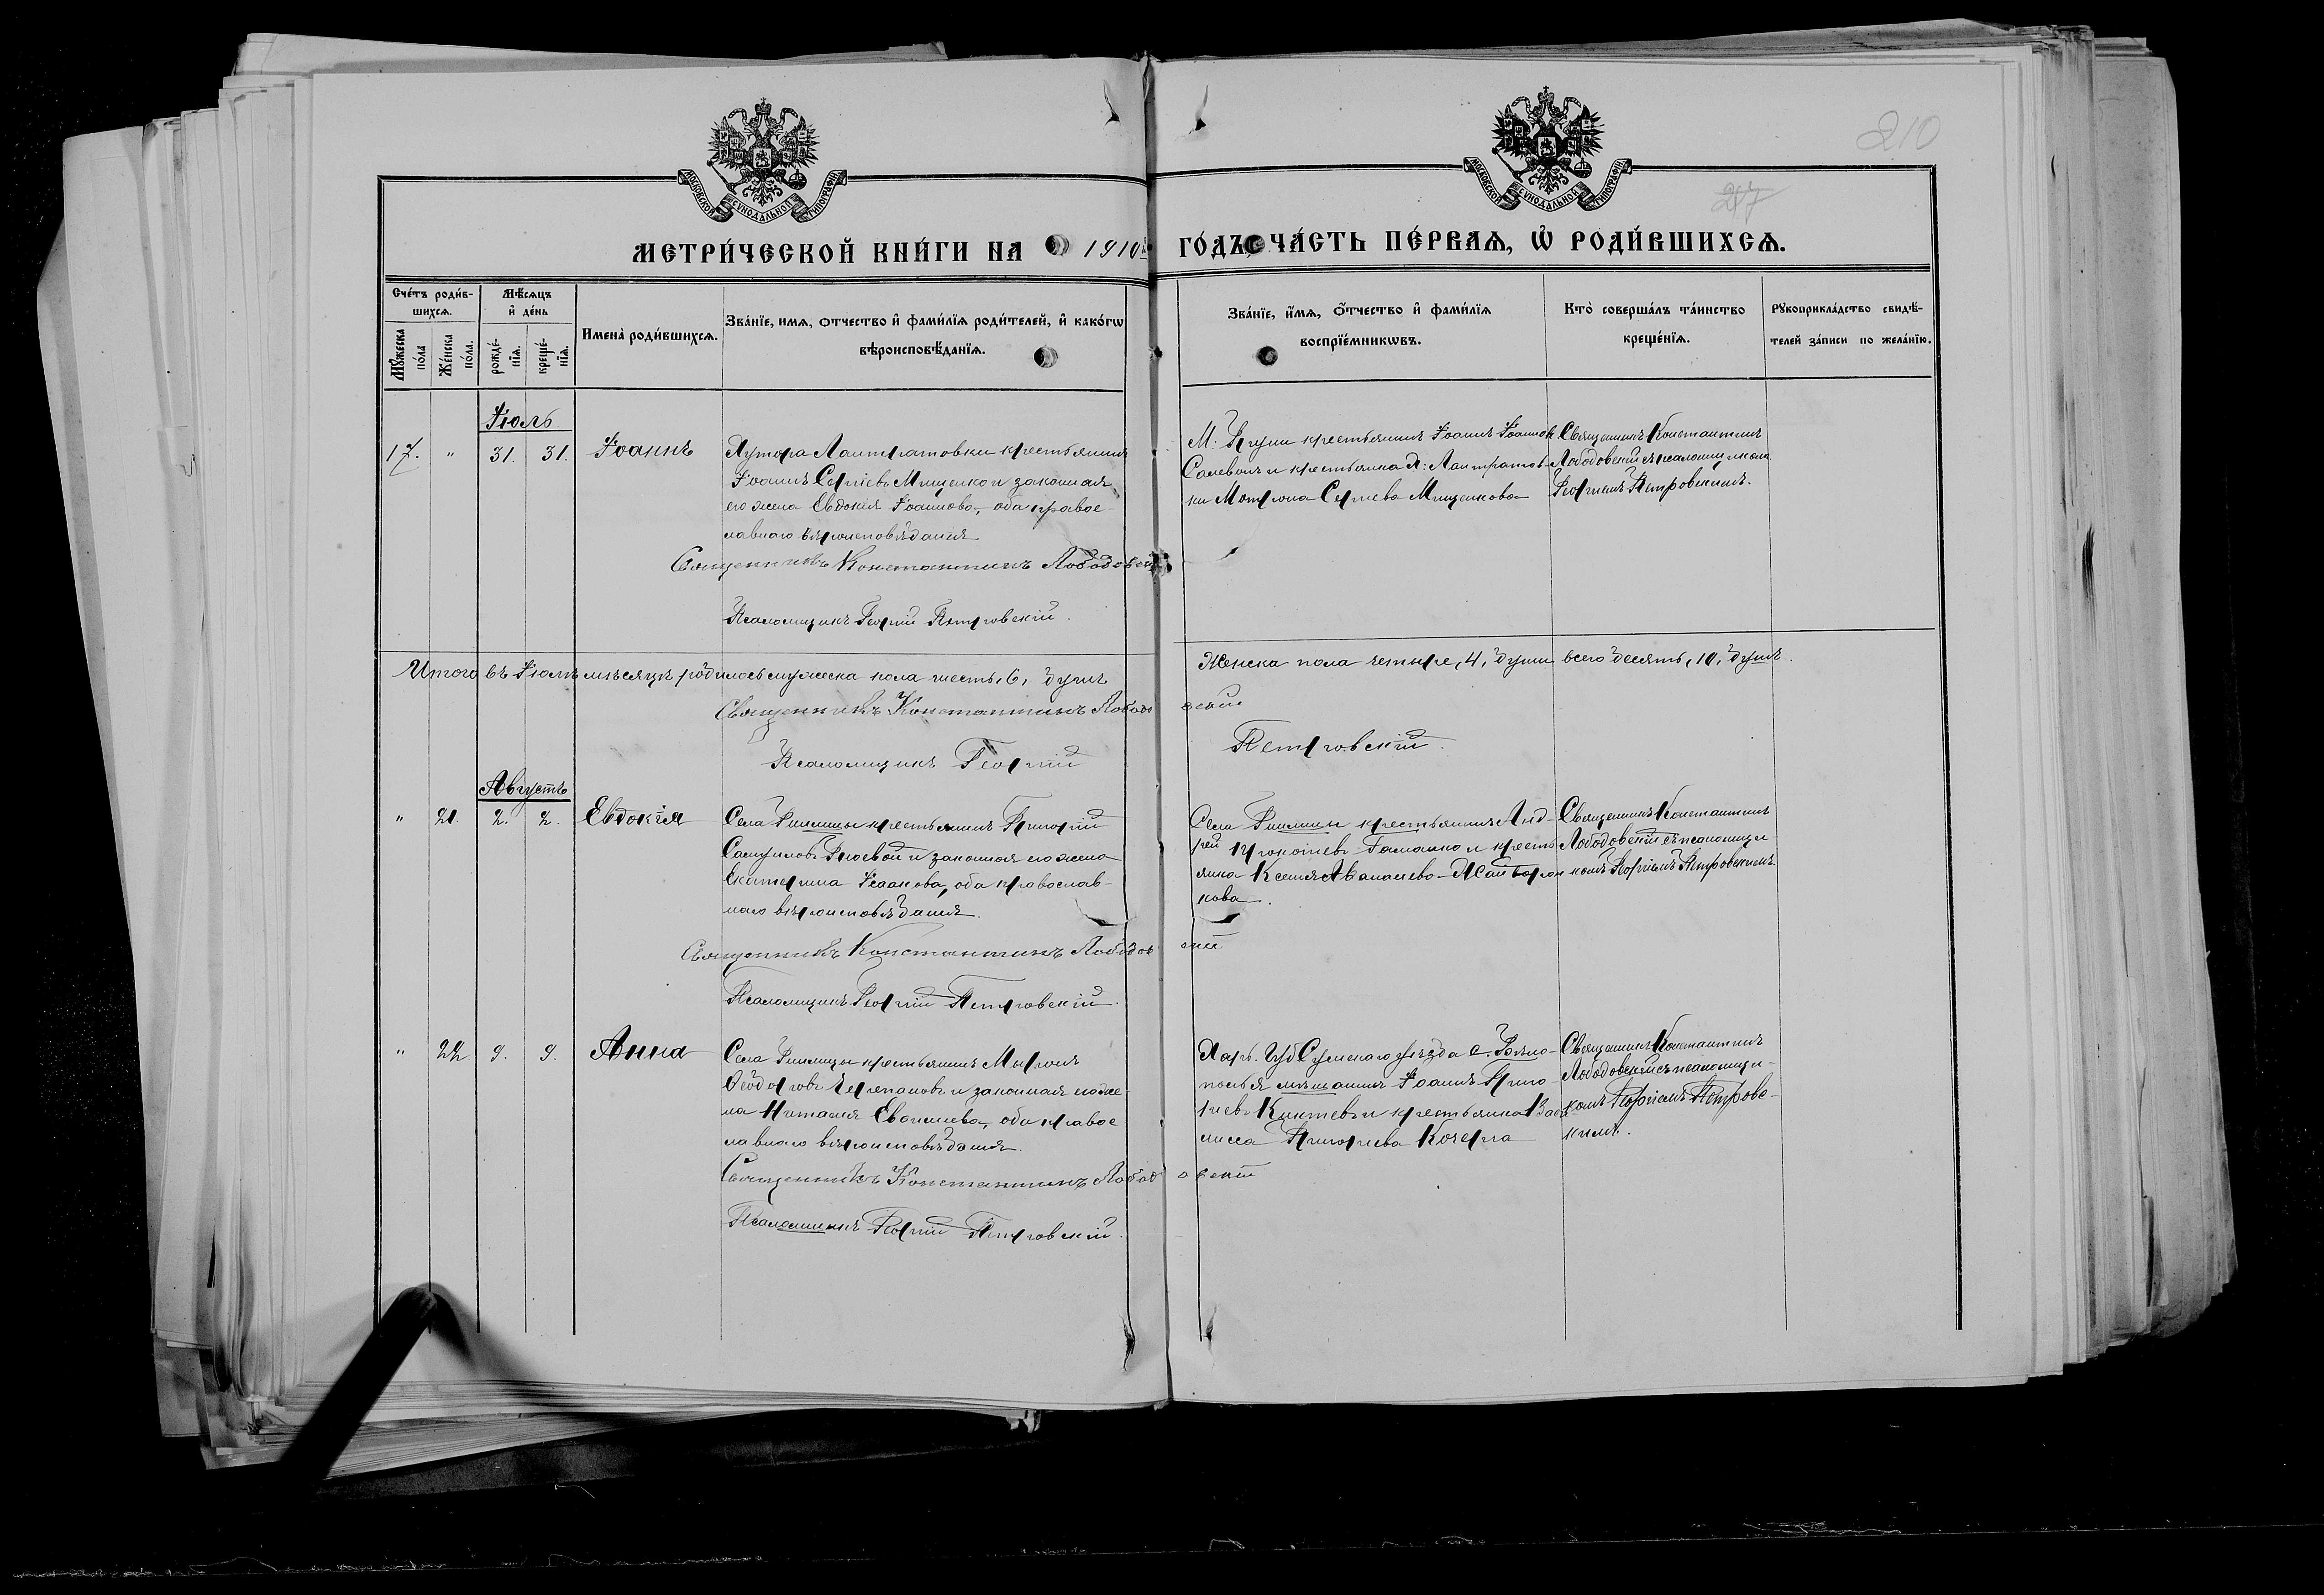 210
217
МОСКОВСКОЙ СѴНОДАЛЬНОЙ ТИПОГРАФІИ
МОСКОВСКОЙ СѴНОДАЛЬНОЙ ТИПОГРАФІИ
МЕТРИ́ЧЕСКОЙ КНИ́ГИ НА 1910й ГО́ДЪ ЧА́СТЬ ПЕ́РВАѦ, Ѡ҆ РОДИ́ВШИХСѦ.
Сче́тъ роди́в-
шихсѧ.
Мꙋ́жеска
по́ла
Же́нска
по́ла.
Мѣ́сѧцъ
и҆ де́нь
рожде́-
нїѧ.
креще́-
нїѧ.
Имена̀ роди́вшихсѧ.
Зва́нїе, имѧ, ѻтчество и҆ фами́лїѧ роди́телей, и҆ како́гѡ
вѣроисповѣ́данїѧ.
Зва́нїе, и҆́мѧ, ѻ҆́тчество и҆ фами́лїѧ
воспрїе́мникѡвъ.
Кто̀ соверша́лъ та́инство
креще́нїѧ.
Рꙋкоприкла́дство свидѣ́-
телей за́писи по жела́нїю.
Іюль
17. " 31. 31. Іоаннъ
Хутора Лантратовки крестьянинъ
Іоаннъ Сергіевъ Мищенко и законная
его жена Евдокія Іоаннова, оба правос-
лавнаго вѣроисповѣданія
Священникъ Константинъ Лободовскій
Псаломщикъ Георгій Петровскій.
крестьянинъ Іоаннъ Іоаннов
и крестьянка х. Лантратов-
ки Мотрона Сергіева Мищенкова
Священникъ Константинъ
Лободовскій съ псаломщикомъ
Георгіемъ Петровскимъ.
Итого въ Іюлѣ мѣсяцѣ родилось мужеска пола шесть, 6, душъ
Женска пола четыре, 4, души всего десять, 10, душъ.
Священникъ Константинъ Лободовскій
Псаломщикъ Георгій Петровскій.
Августъ
" 21. 2. 2. Евдокія
Села крестьянинъ Григорій
Самуиловъ и законная его жена
Екатерина Исаакова, оба православ-
наго вѣроисповѣданія.
Священникъ Константинъ Лободовскій
Псаломщикъ Георгій Петровскій.
Села крестьянинъ Анд-
рей и кресть
янка Ксенія Аѳанасіева
кова.
Священникъ Константинъ
Лободовскій съ псаломщи
комъ Георгіемъ Петровскимъ.
" 22. 9. 9. Анна
Села крестьянинъ Миронъ
Ѳеодоровъ и законная его же-
на Наталія оба правос
лавнаго вѣроисповѣданія.
Священникъ Константинъ Лободовскій
Псаломщикъ Георгій Петровскій.
Харь. Губ Сумскаго уѣзда с. Бѣло-
полья мѣщанинъ Іоаннъ Григо-
ріевъ и крестьянка Васи
лисса Григорьева Кочерга
Священникъ Константинъ
Лободовскій съ псаломщи-
комъ Георгіемъ Петровс-
кимъ.